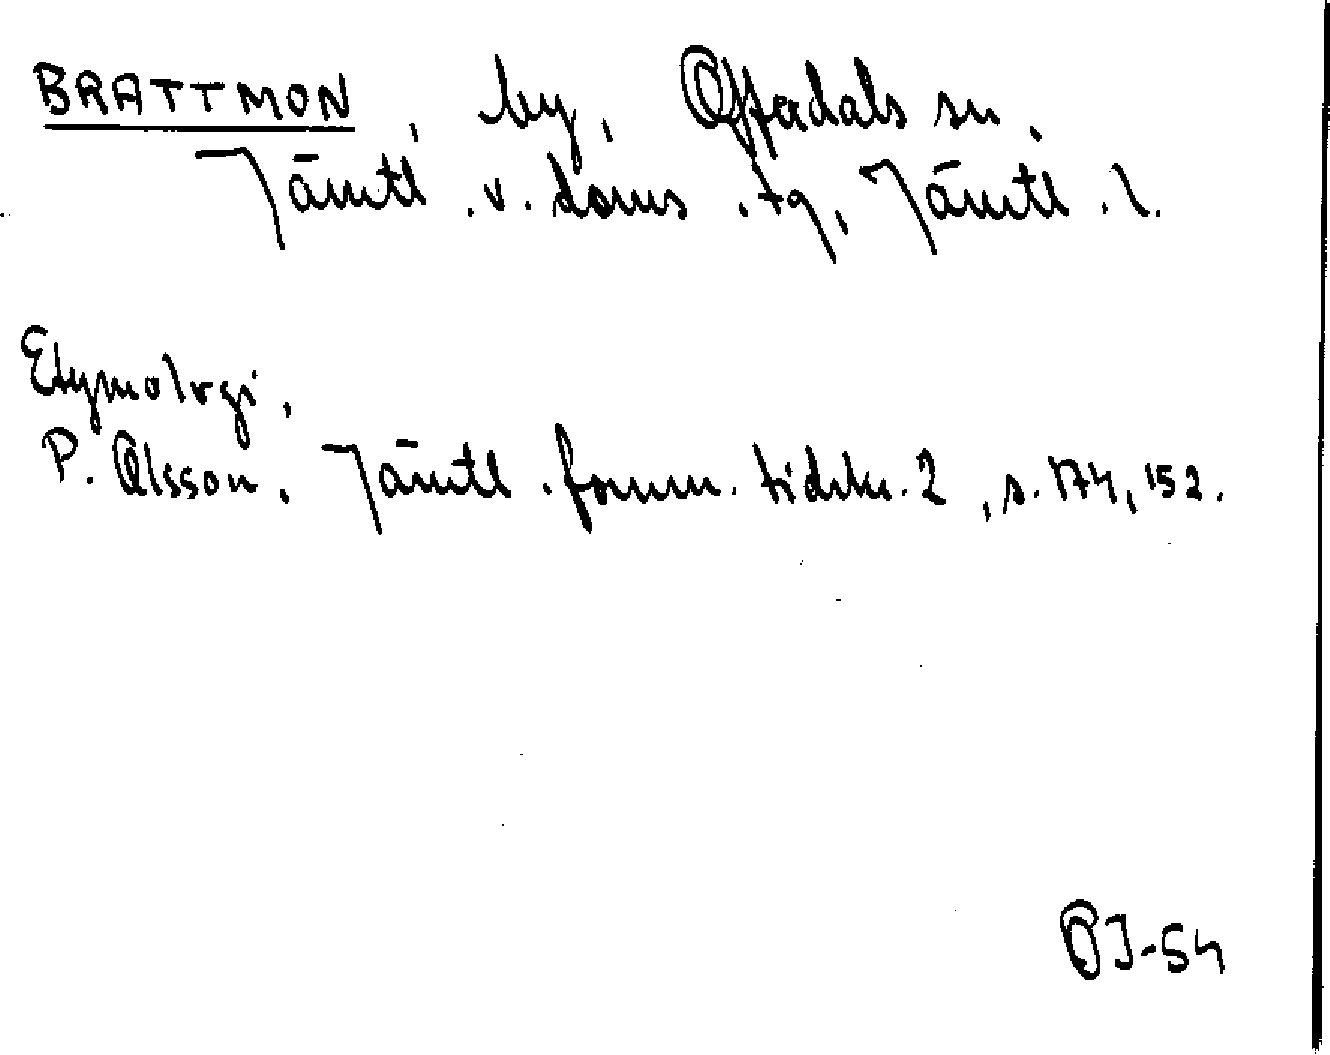 BRATTMON, by, Offerdals sn,
Jämtl. v. doms. tg, Jämtl. l.
Etymologi.
P. Olsson, Jämtl. fornm. tidskr. 2, s. 174, 152.
OJ-54